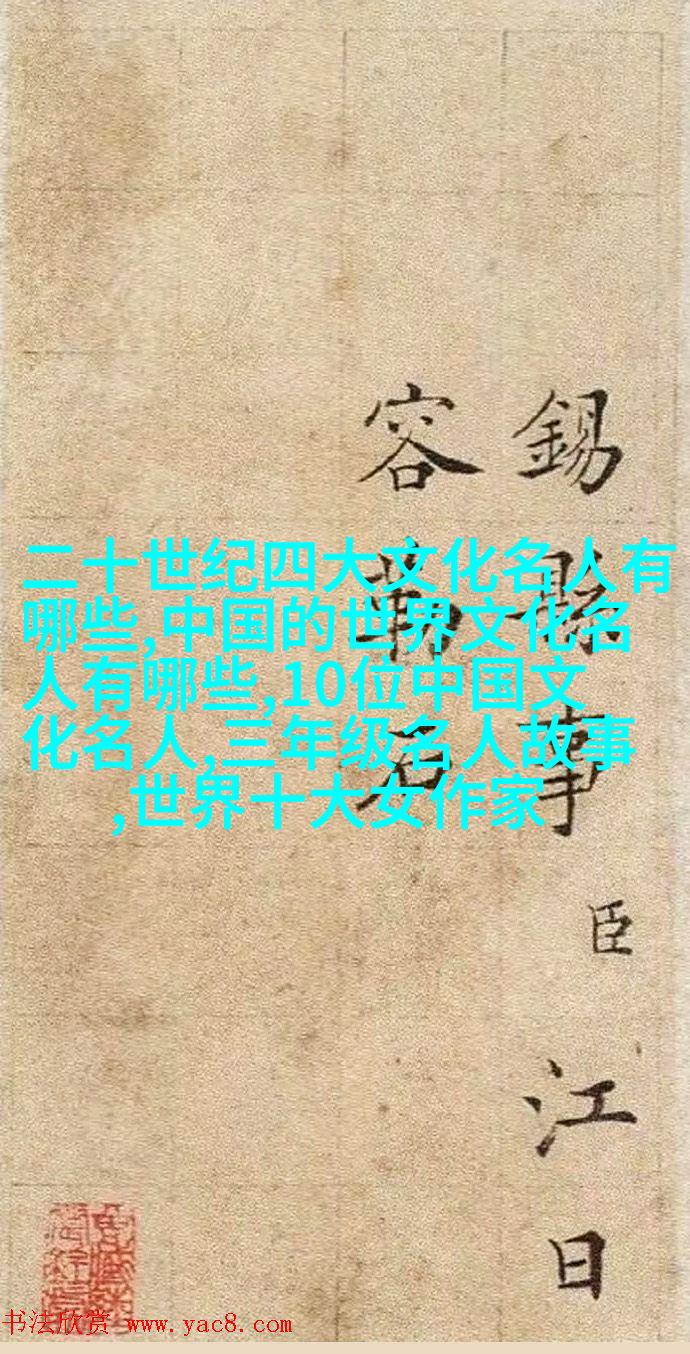 二十世纪四大文化名人有
哪些,中国的世界文化名
人有哪些,10位中国文
化名人,三年级名人故事
,世界十大女作家
錫縣事臣江日
容
书法欣赏 www.yac8.com